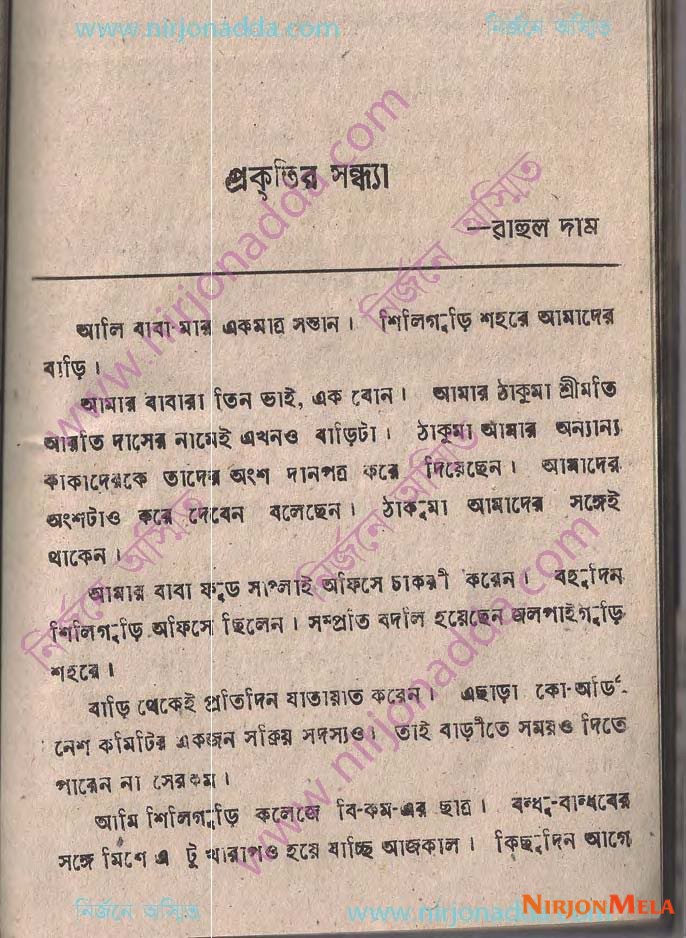 www.nirjonadda.com নির্জনে অস্মিত
প্রকৃতির সন্ধ্যা
—রাহুল দাম
আলি বাবা-মার একমাত্র সন্তান। শিলিগুড়ি শহরে আমাদের
বাড়ি।
আমার বাবারা তিন ভাই, এক বোন। আমার ঠাকুমা শ্রীমতি
আরতি দাসের নামেই এখনও বাড়িটা। ঠাকুমা আমার অন্যান্য
কাকাদেরকে তাদের অংশ দানপত্র করে দিয়েছেন। আমাদের
অংশটাও করে দেবেন বলেছেন। ঠাকুমা আমাদের সঙ্গেই
থাকেন।
আমার বাবা ফুড সাপ্লাই অফিসে চাকরী করেন। বহুদিন
শিলিগুড়ি অফিসে ছিলেন। সম্প্রতি বদলি হয়েছেন জলপাইগুড়ি
শহরে।
বাড়ি থেকেই প্রতিদিন যাতায়াত করেন। এছাড়া কো-অর্ডি-
নেশ কমিটির একজন সক্রিয় সদস্যও। তাই বাড়ীতে সময়ও দিতে
পারেন না সেরকম।
আমি শিলিগুড়ি কলেজে বি-কম-এর ছাত্র। বন্ধু-বান্ধবের
সঙ্গে মিশে এ টু খারাপও হয়ে যাচ্ছি আজকাল। কিছুদিন আগে
www.nirjonadda.com
নির্জনে অস্মিত
নির্জনে অস্মিত
নির্জনে অস্মিত
www.nirjonadda.com
নির্জনে অস্মিত www.nirjonadda.com
NIRJONMELA